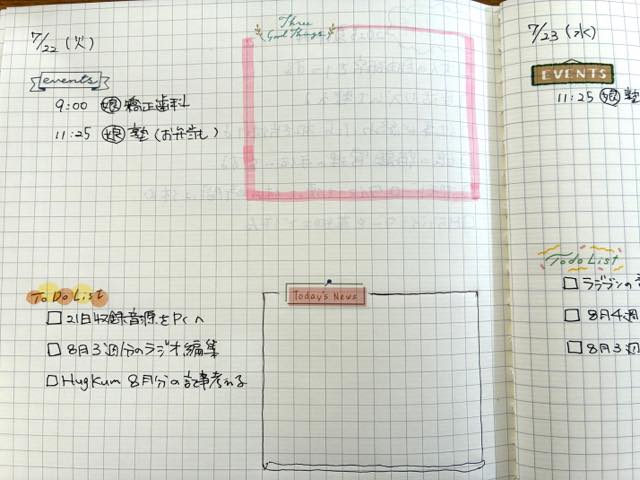 7/22（火）
events
9:00 娘 矯正歯科
11:25 娘 塾（お弁当）
Three Good Things
To Do List
21日収録音源をPCへ
8月3週分のラジオ編集
HugKum 8月分の記事考える
Today's News
7/23（水）
EVENTS
11:25 娘 塾
Todo List
ラジブンの
8月4週
8月3週